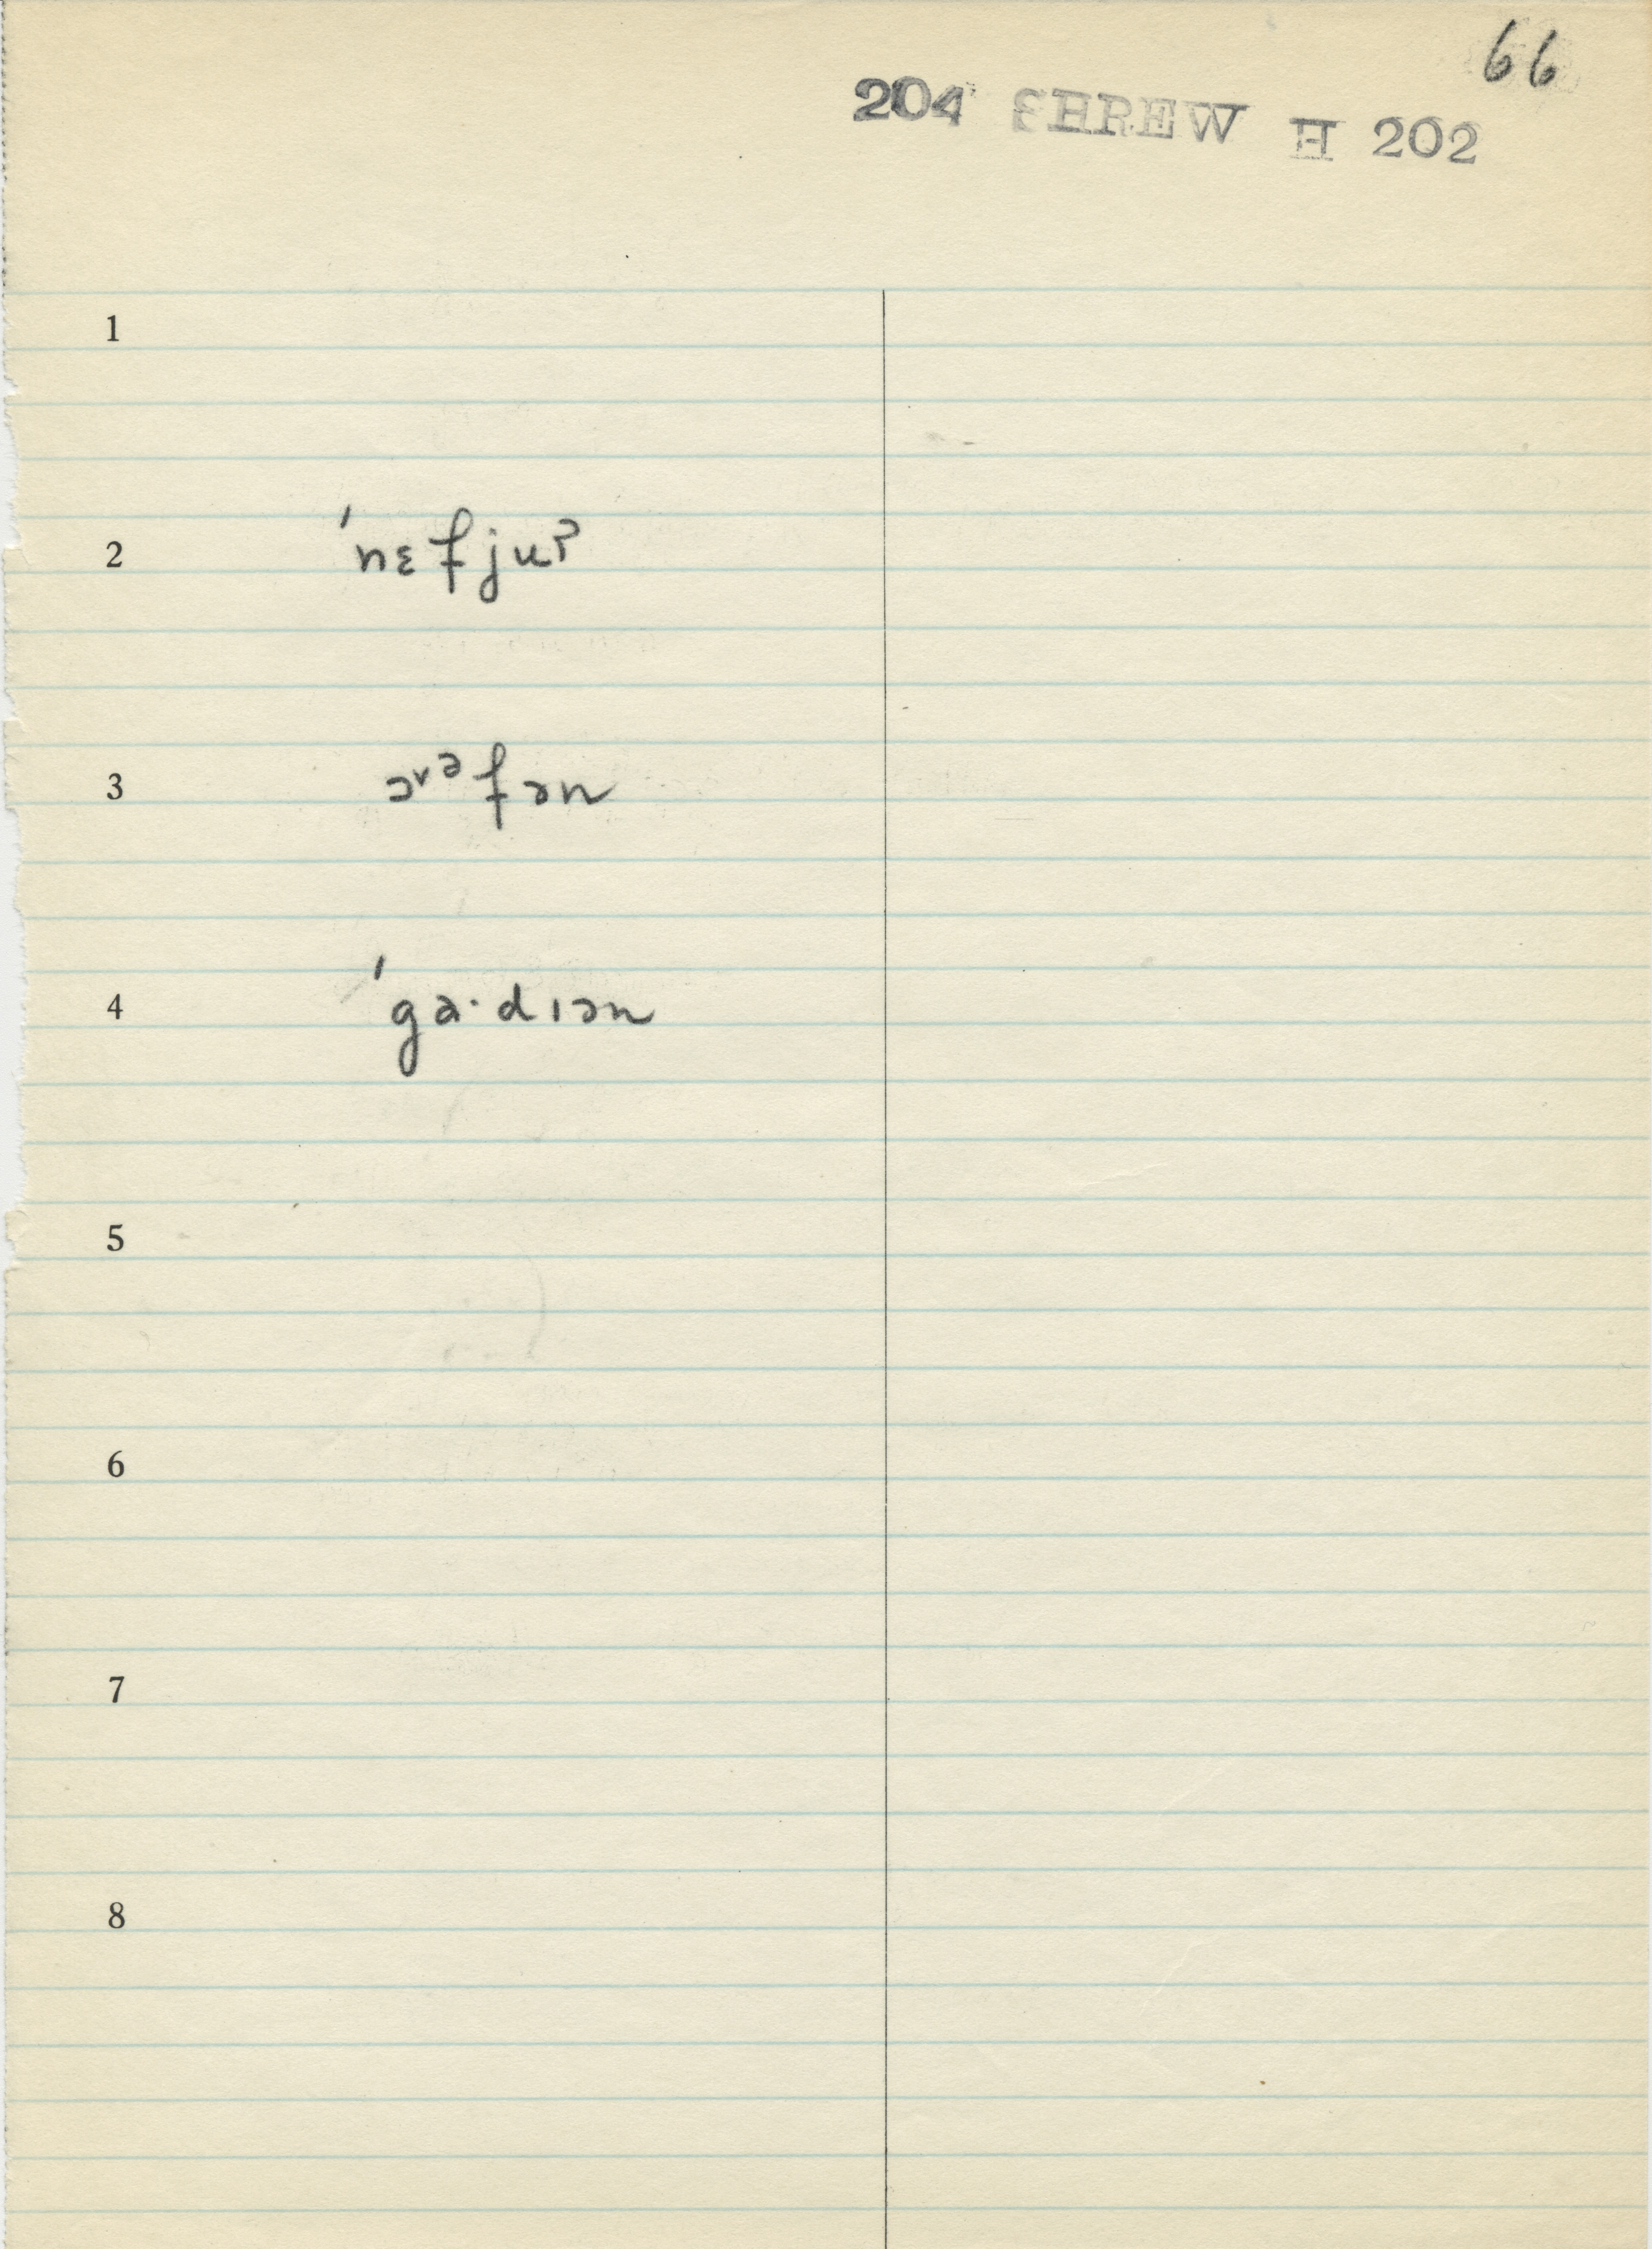 66
204 SHREW H 202
1
2 ˈnɛfjuˀ
3 ɔ˅ᵊfən
4 ˈga·dɪən
5
6
7
8